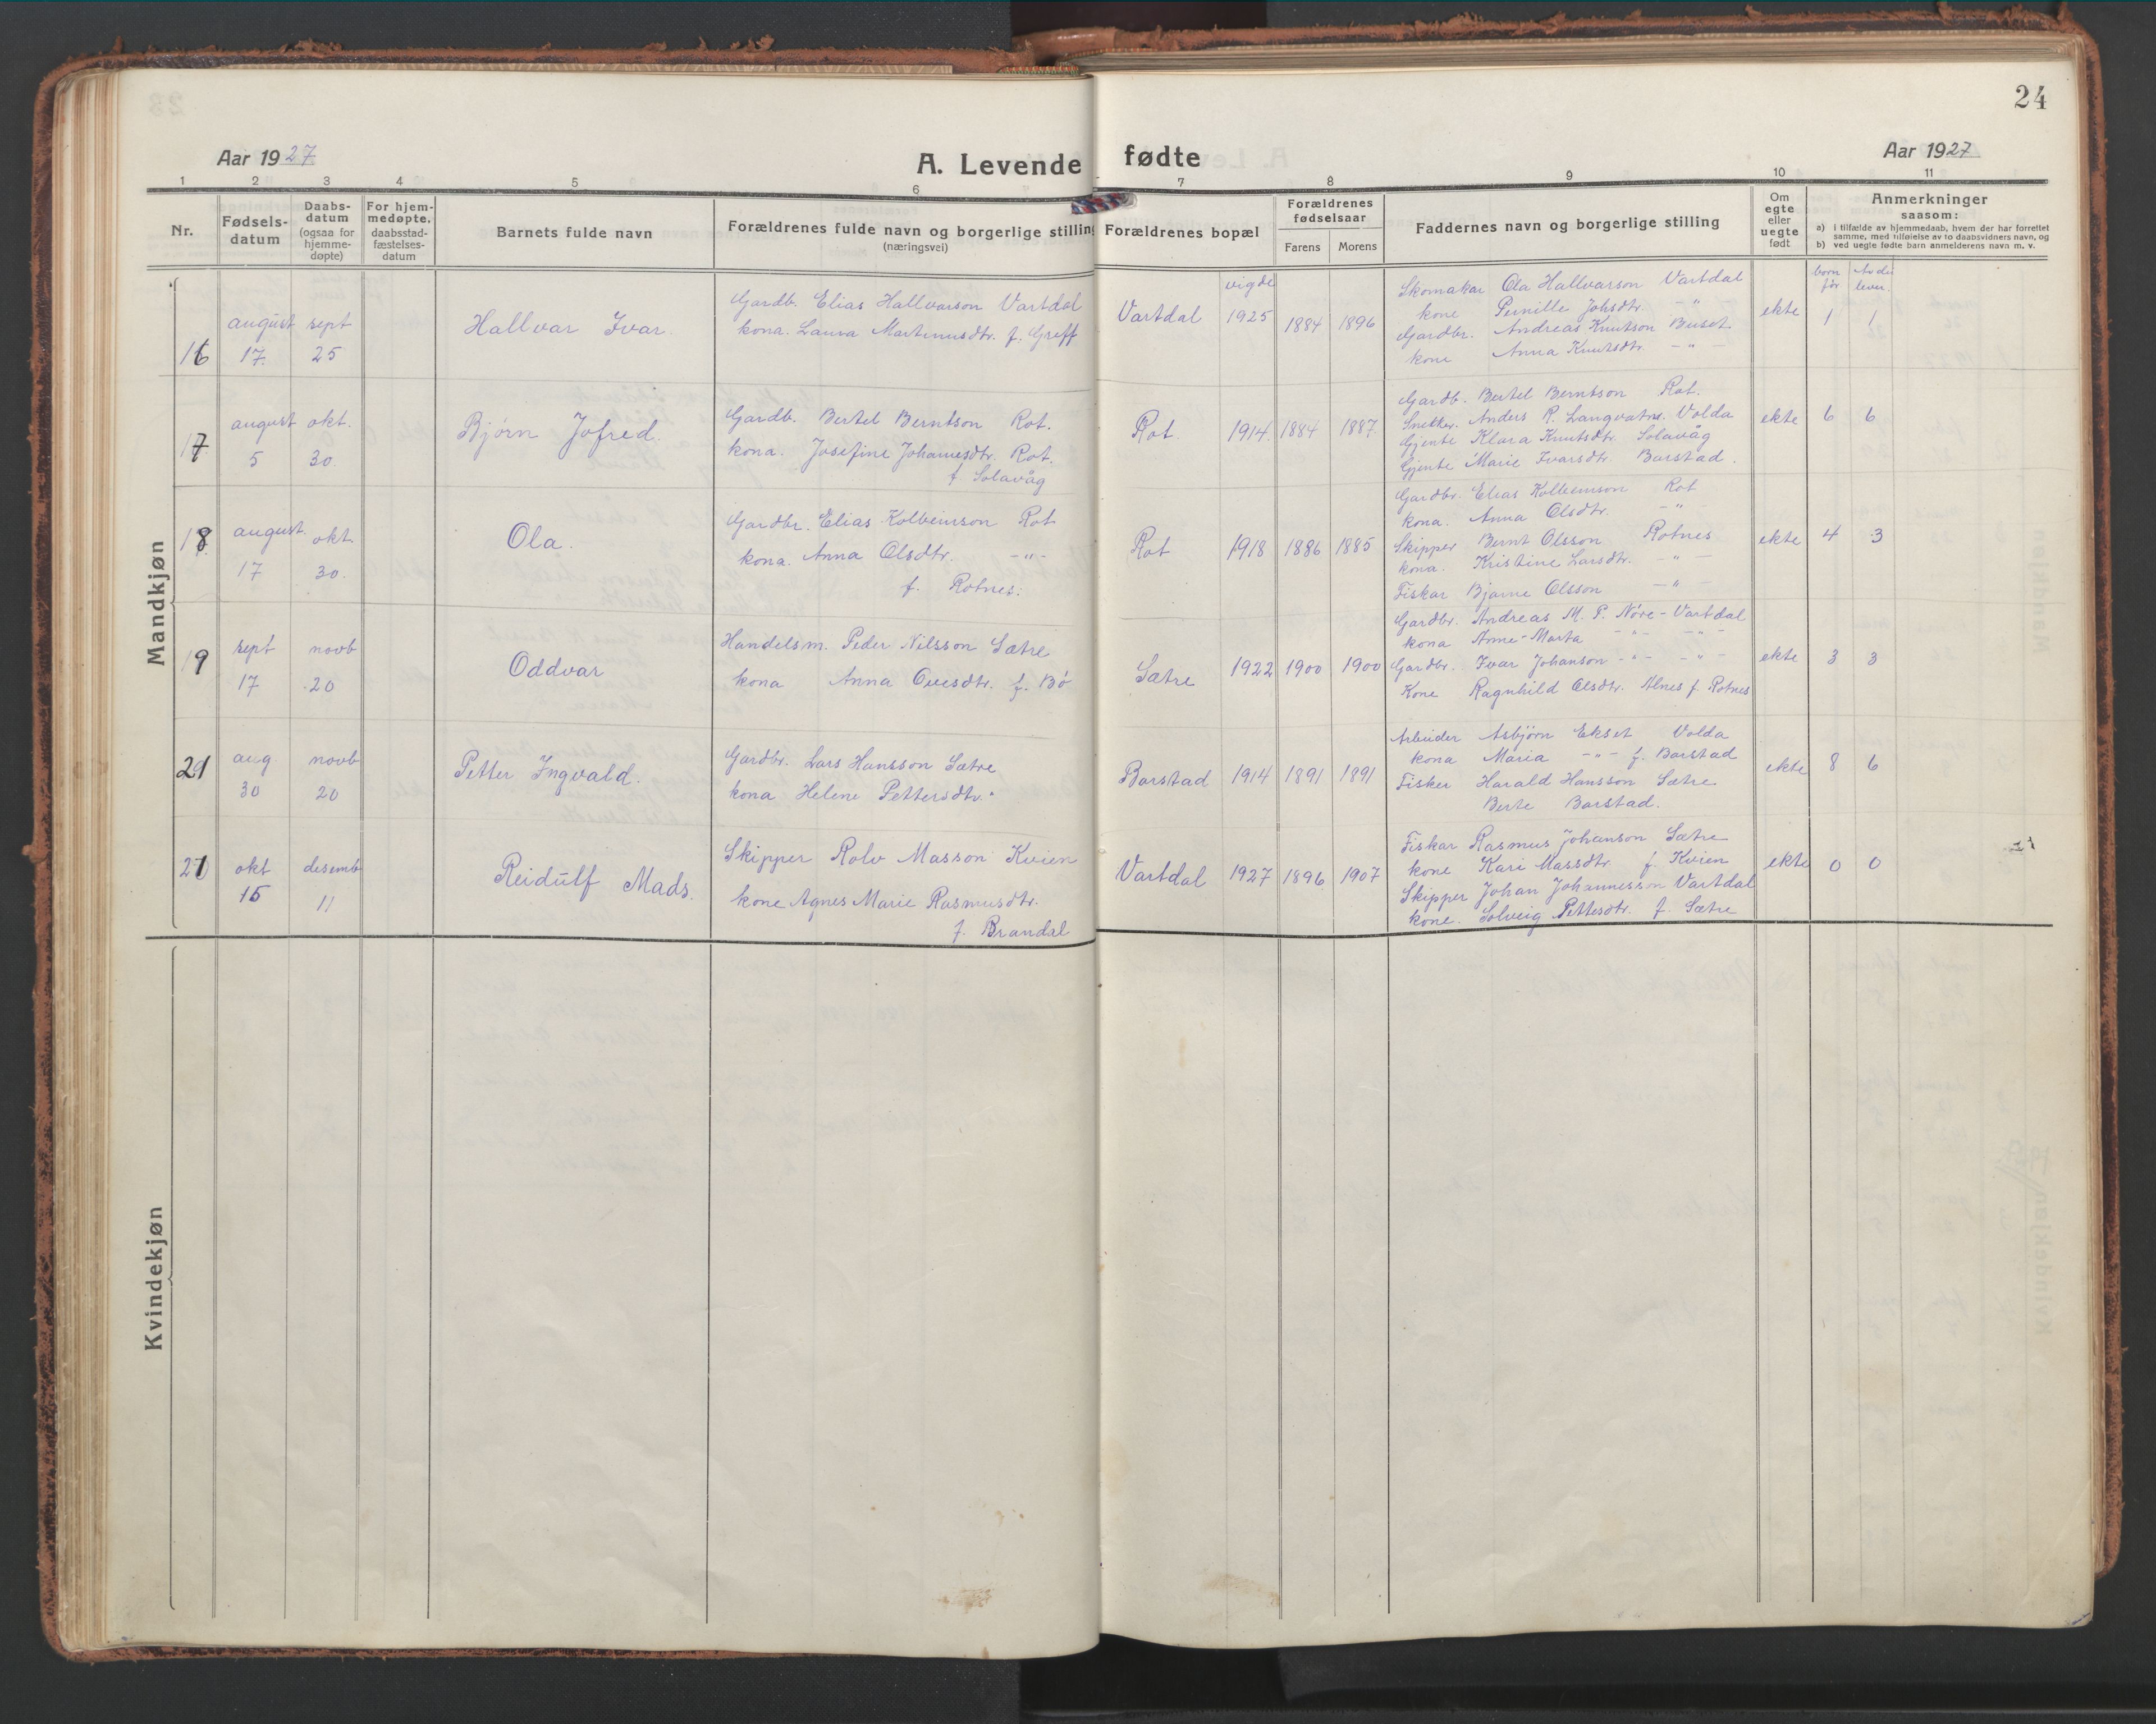 24
Aar 1927
A. Levende fødte
Aar 1927
1 2 3 4 5 6 7 8 9 10 11
Nr.
Fødsels-
datum
Daabs-
datum
(ogsaa for
hjemme-
døpte)
For hjem-
medøpte,
daabsstad-
fæstelses-
datum
Barnets fulde navn
Forældrenes fulde navn og borgerlige stilling
(næringsvei)
Forældrenes bopæl
Forældrenes
fødselsaar
Farens Morens
Faddernes navn og borgerlige stilling
Om
egte
eller
uegte
født
Anmerkninger
saasom:
a) i tilfælde av hjemmedaab, hvem der har forrettet
samme, med tilføielse av to daabsvidners navn, og
b) ved uegte fødte barn anmelderens navn m. v.
Mandkjøn
vigde
born før
Av dei lever.
16
august 17.
sept 25
Hallvar Ivar.
Gardb. Elias Hallvarson Vartdal
kona. Laura Martinusdtr. f. Greff
Vartdal 1925 1884 1896
Skomakar Ola Hallvarson Vartdal
kone Pernille Johsdtr. - " -
Gardbr. Andreas Knutson Buset
kone Anna Knutsdtr. - " -
ekte 1 1
17
august 5
okt. 30
Bjørn Jofred.
Gardb. Bertel Berntson Rot.
kona. Josefine Johannesdtr. Rot.
f. Solavåg
Rot. 1914. 1884 1887.
Gardb. Bertel Berntson Rot.
Snekker. Anders R. Langvatne. Volda
Gjente Klara Knutsdtr. Solavåg
Gjente Marie Ivarsdtr. Barstad.
ekte 6 6
18
august. 17
okt 30.
Ola.
Gardbr. Elias Kolbeinson Rot
kona. Anna Olsdtr. - " -
f. Rotnes.
Rot 1918 1886 1885
Gardbr. Elias Kolbeinson Rot
kona. Anna Olsdtr. - " -
Skipper Bernt Olsson Rotnes
kona. Kristine Larsdtr. - " -
Fiskar Bjarne Olsson - " -
ekte 4 3
19
sept 17
novb 20
Oddvar
Handelsm. Peder Nilsson Sætre
kona Anna Ovesdtr. f. Bö
Sætre 1922 1900 1900
Gardbr. Andreas M. P. Nöre-Vartdal
kona Anne-Marta - " - - " -
Gardbr. Ivar Johanson - " - - " -
Kone Ragnhild Olsdtr. Alnes f. Rotnes
ekte 3 3
21
aug. 30
novb 20
Petter Ingvald.
Gardbr. Lars Hansson Sætre
kona Helene Pettersdtr.
Barstad 1914 1891 1891
Arbeider Asbjørn Ekset Volda
kona Maria - " - f. Barstad
Fisker Harald Hansson Sætre
Berte Barstad.
ekte 8 6
21
okt 15
desemb 11
Reidulf Mads.
Skipper Rolv Masson Kvien
kone Agnes Marie Rasmusdtr.
f. Brandal
Vartdal 1927 1896 1907
Fiskar Rasmus Johanson Sætre
kone Kari Massdtr f. Kvien
Skipper Johan Johannesson Vartdal
kone. Solveig Pettesdtr. f. Sætre
ekte 0 0
Kvindekjøn